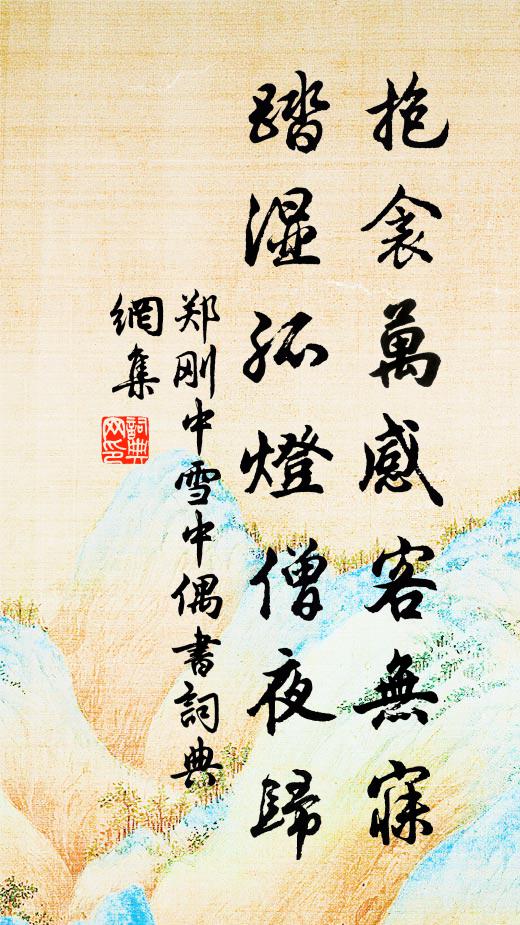 抱衾萬感客無寐
踏濕孤燈僧夜歸
郑刚中雪中偶書詞典
網集
詞典
网印